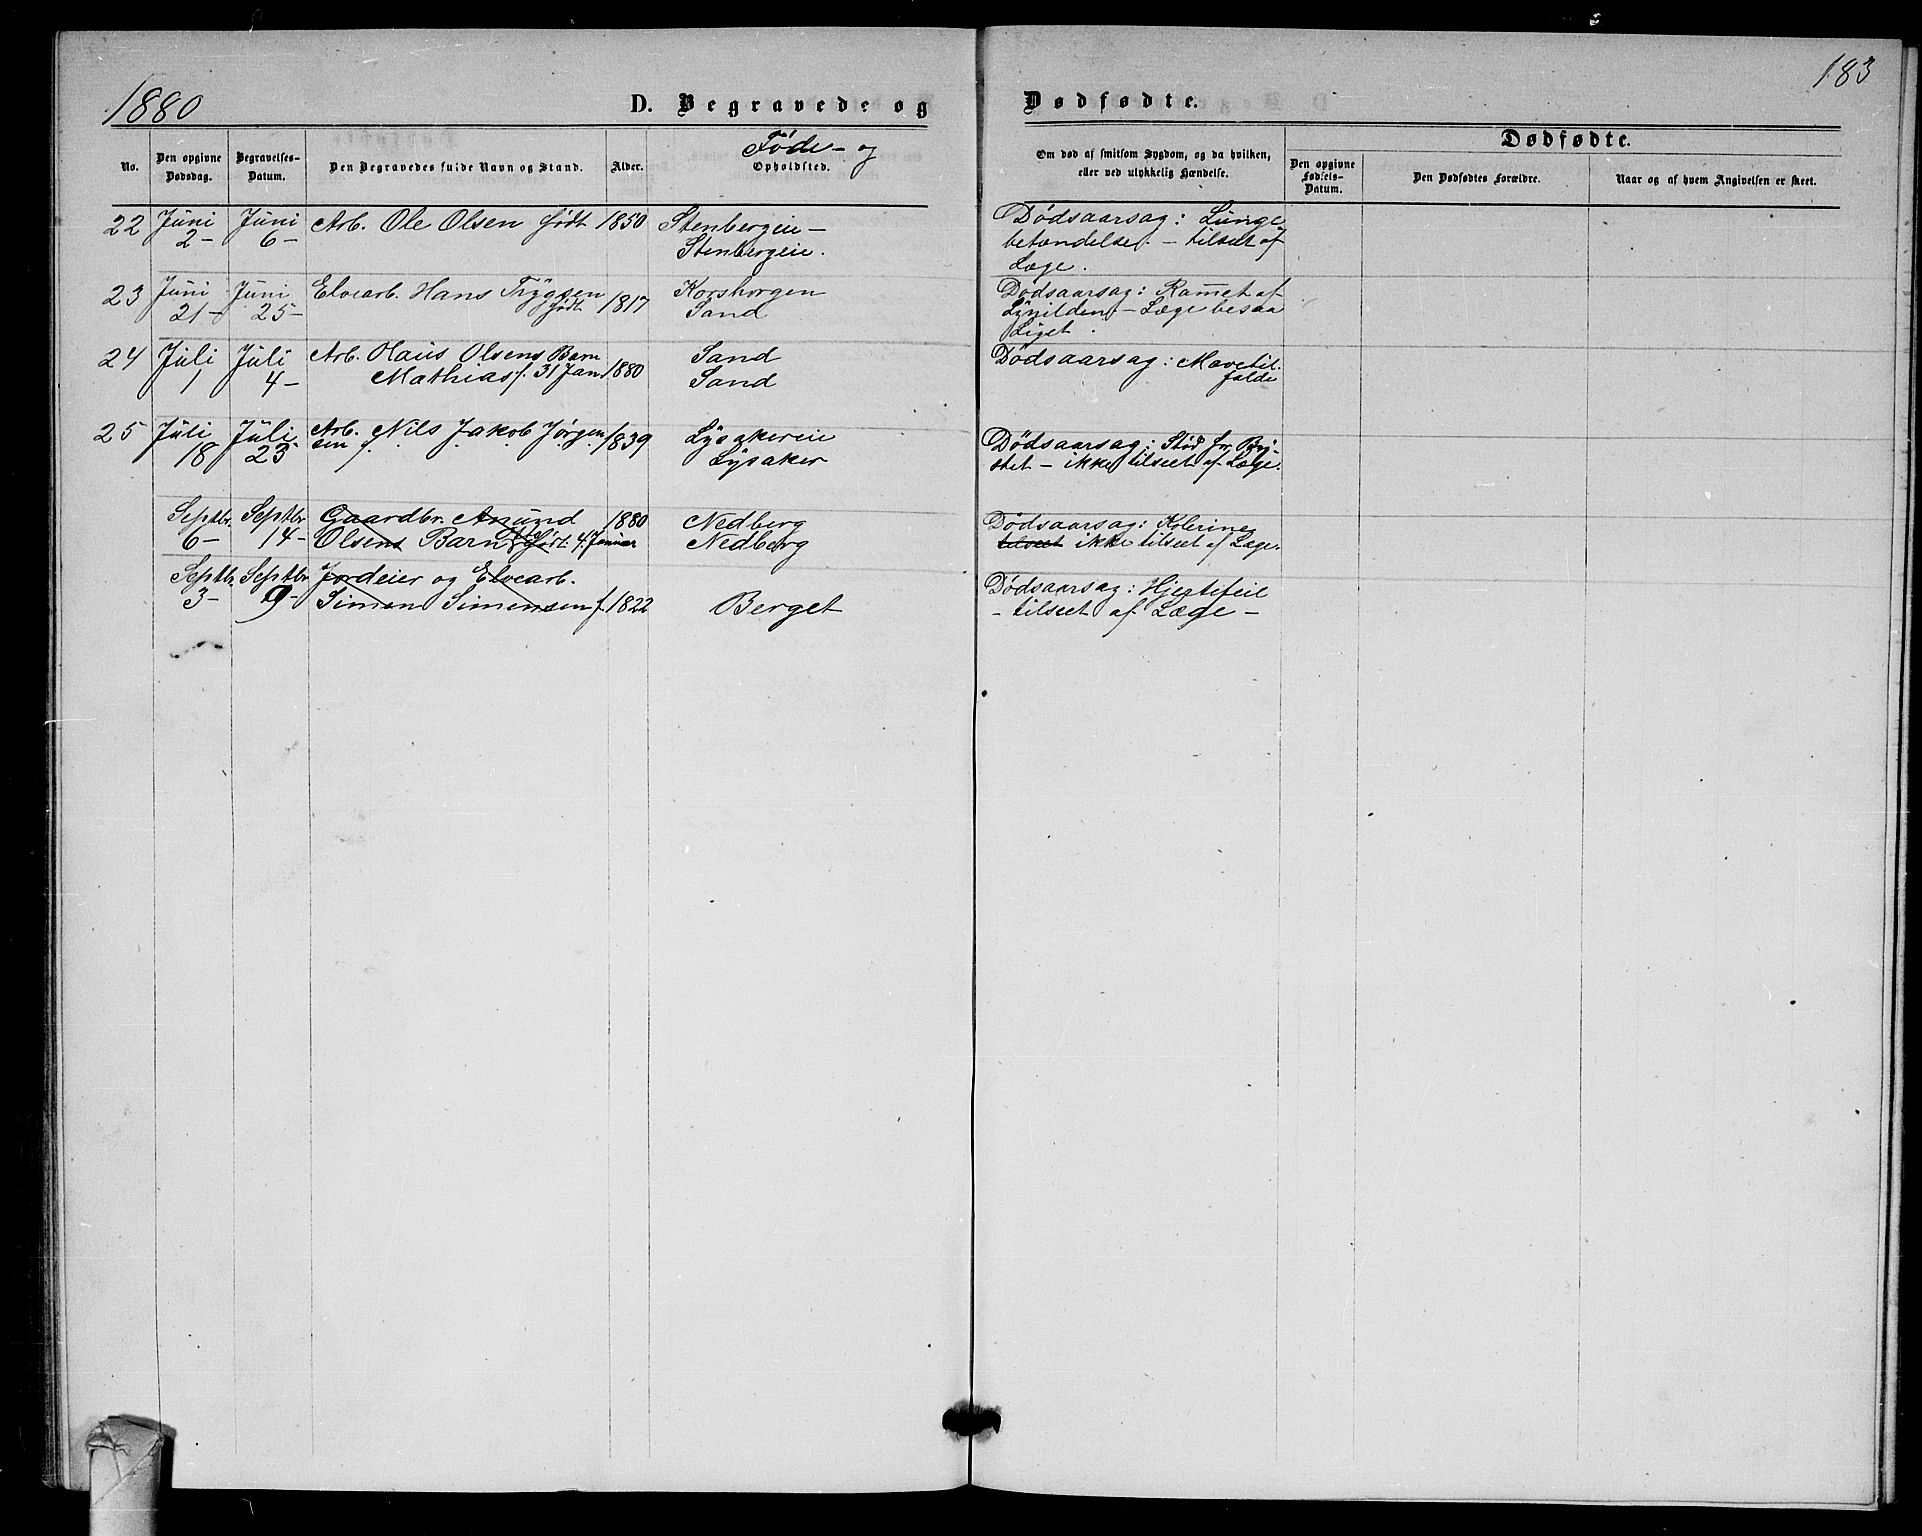 183
1880
D. Begravede og
Dødfødte.
No.
Den opgivne Dødsdag.
Begravelses-Datum.
Den Begravedes fulde Navn og Stand.
Alder.
Føde- og
Opholdsted.
Om død af smitsom Sygdom, og da hvilken,
eller ved ulykkelig Hændelse.
Dødfødte.
Den opgivne Fødsels-Datum.
Den Dødfødtes Forældre.
Naar og af hvem Angivelsen er skeet.
22 Juni Juni Arb. Ole Olsen født 1850 Stenbergeie - Dødsaarsag: Lunge
2- 6- Stenbergeie. betændelse. - tilseet af
Læge.
23 Juni Juni Elvearb. Hans Trygsen Korshorgen Dødsaarsag: Ramet af
21- 25- født 1817 Sand Lynilden, - Læge besaa
Liget.
24 Juli Juli Arb. Olaus Olsens Barn Sand Dødsaarsag: Mavetil-
1 4- Mathias f. 31 Jan 1880 Sand falde
25 Juli Juli Arb. Nils Jakob Jørgen- 1839 Lysakereie Dødsaarsag: Stød for Bry-
18 23 sen f. Lysaker stet - ikke tilseet af Læge.
Septbr. Septbr. Gaardbr. Anund 1880 Nedberg Dødsaarsag: Kolerine
6- 14- Olsens Barn født 4. Januar Nedberg tilseet ikke tilseet af Læge.
Septbr. Septbr. Jordeier og Elvearb. Dødsaarsag: Hjertefeil
3- 9- Simen Simensen f. 1822 Berget - tilseet af Læge -